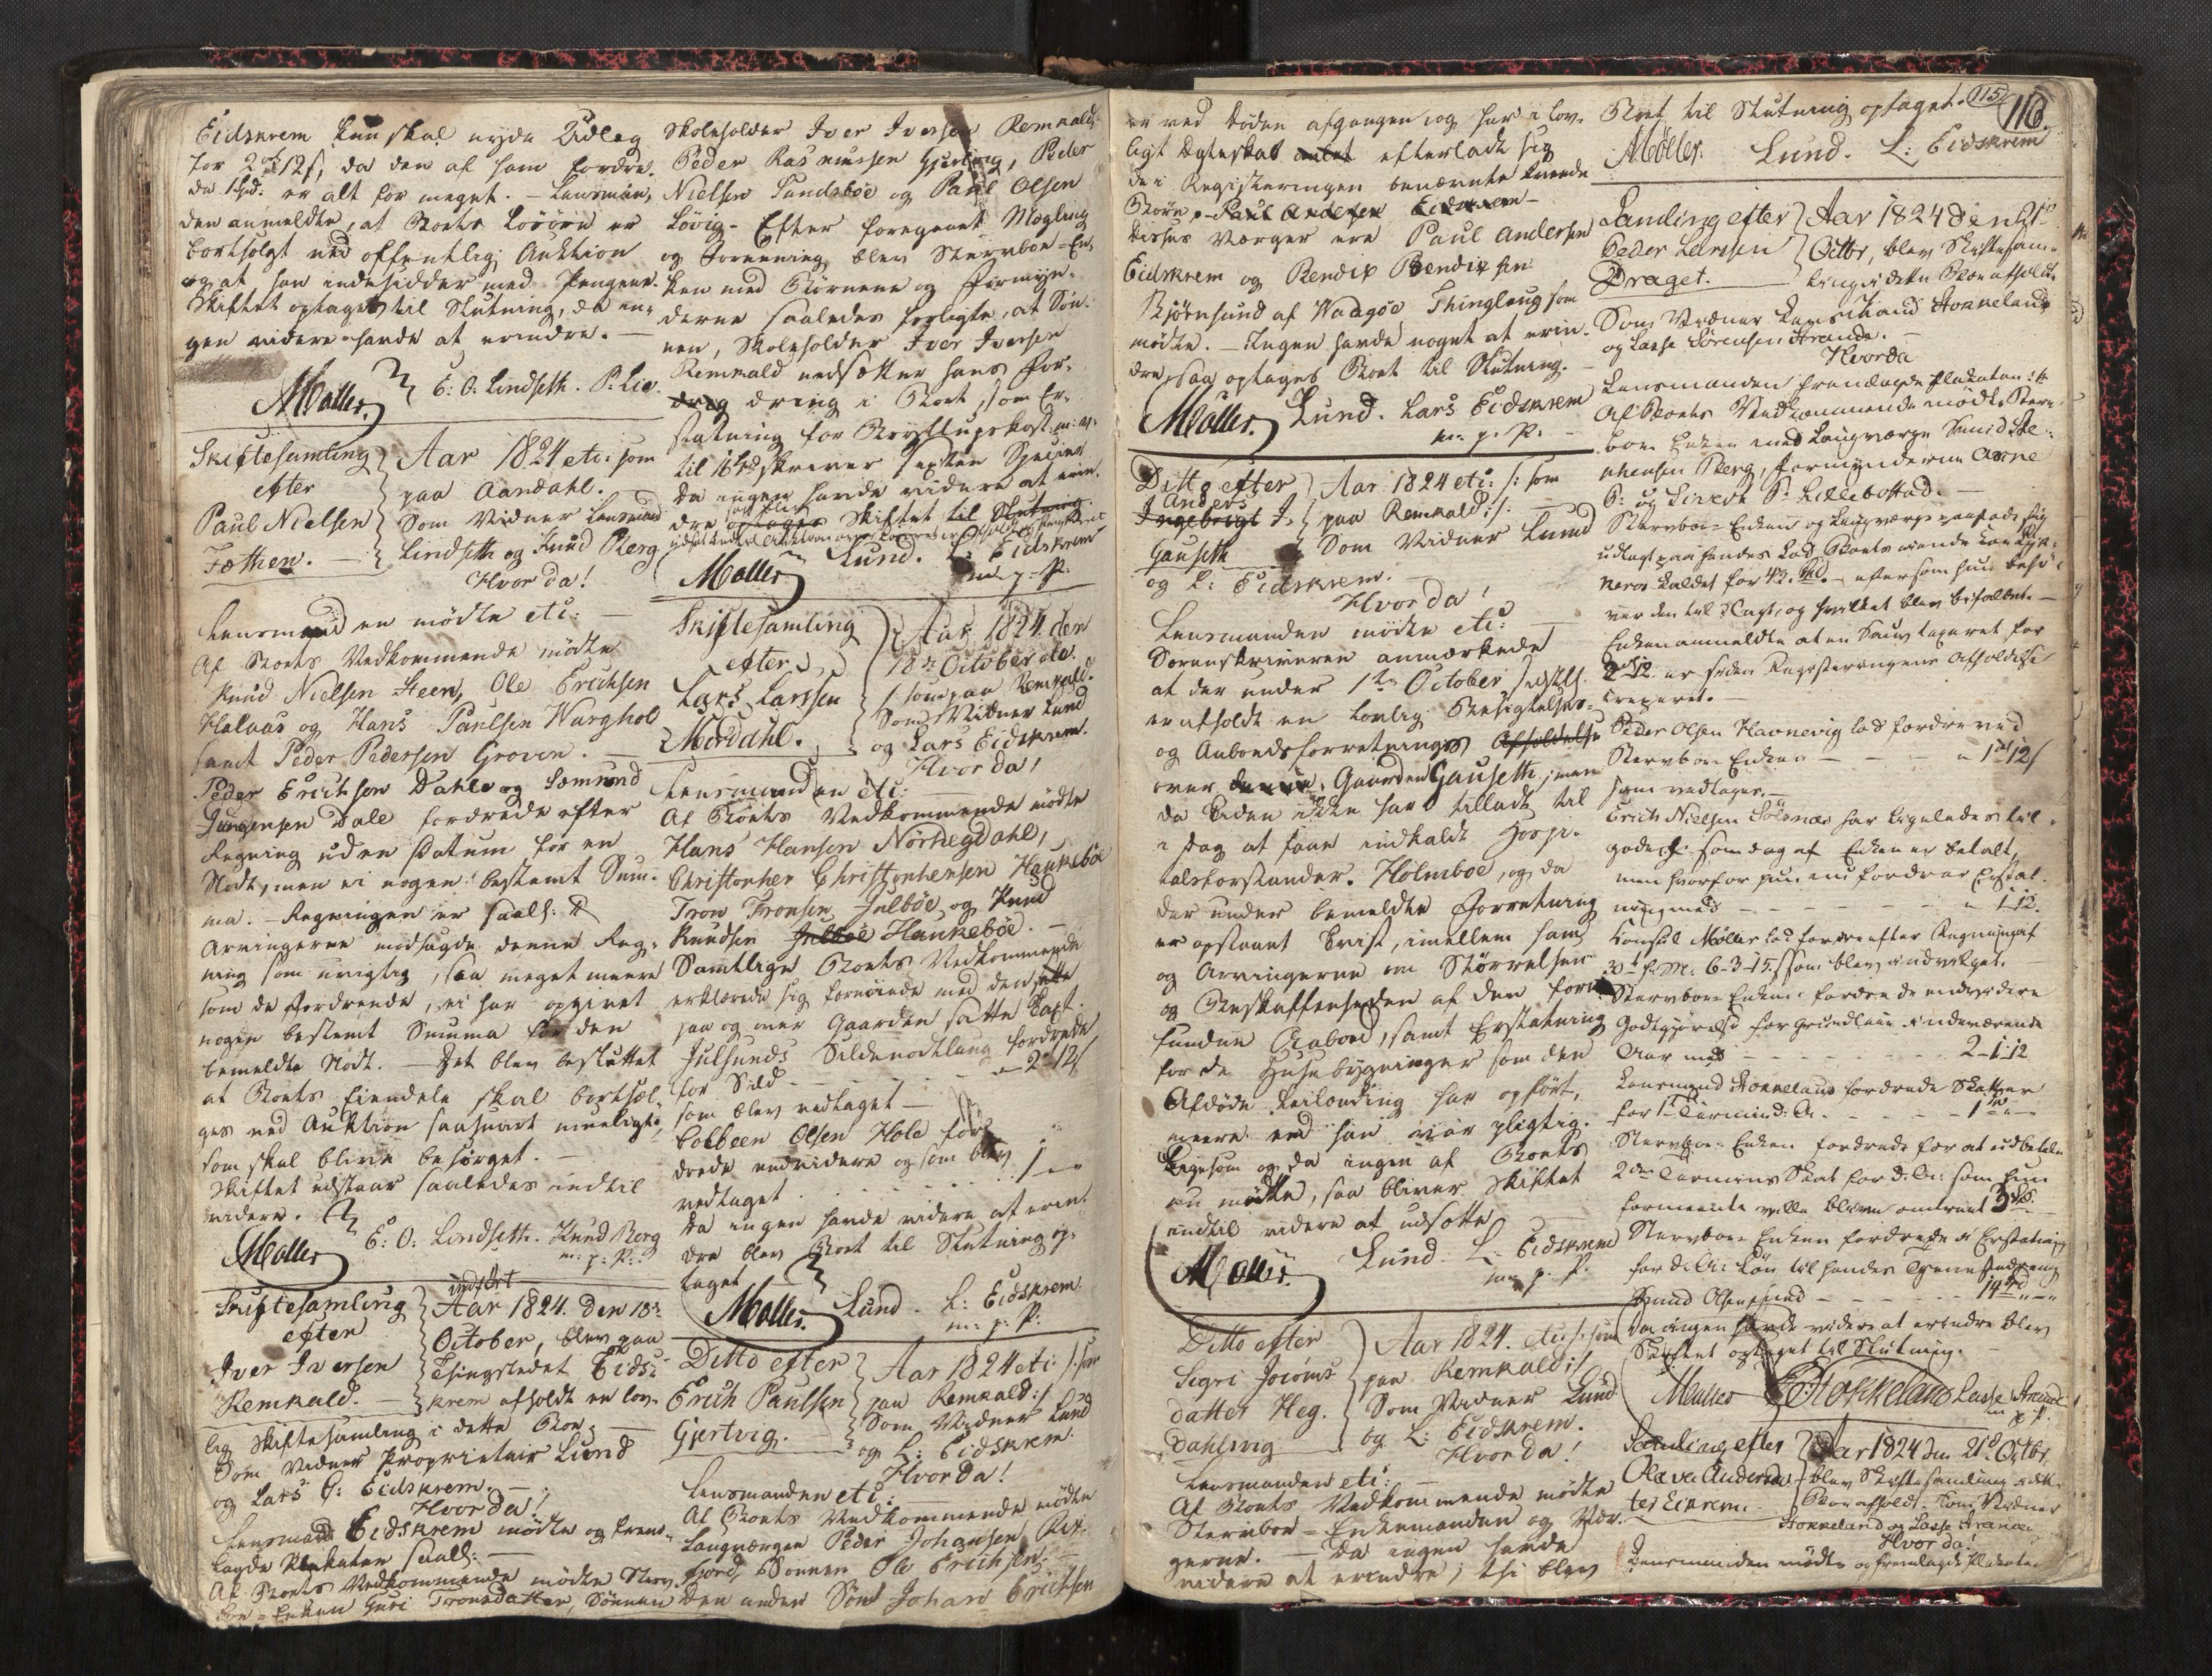 Eidskrem kun skal nyde Udlæg
for 2 ort 12 s, da den af ham fordre-
de 1 Spd: er alt for meget. — Lensman-
den anmeldte, at Boets Løsøre er
bortsolgt ved offentlig Auktion
og at han indesidder med Pengene.
Skiftet optages til Slutning, da in-
gen videre havde at erindre. —
Møller. E: O. Lindseth. P: Lie
Skiftesamling
efter
Paul Nielsen
Fathen. —
Aar 1824 etc: som
paa Aandahl. —
Som Vidner Lensmand
Lindseth og Knud Berg
Hvor da!
Lensmanden mødte etc: —
Af Boets Vedkommende mødte
Knud Nielsen Steen, Ole Erichsen
Halaas og Hans Paulsen Varghol
samt Peder Pedersen Groven. —
Peder Erichsen Dahle og Sæmund
Jørgensen Dale fordrede efter
Regning uden Datum for en
Nodt, men ei nogen bestemt Sum-
ma. — Regningen er saal:
Arvingerne modsagde denne Reg-
ning som urigtig, saa meget meere
som de Fordrende, ei har opgivet
nogen bestemt Summa for den
bemeldte Nodt. — Det blev besluttet
at Boets Eiendele skal bortsæl-
ges ved Auktion saasnart mueligt
som skal blive besørget. —
Skiftet udstaar saaledes indtil
videre.
Møller E: O: Lindseth. Knud Berg
m: p: P:
Skiftesamling
efter
Iver Iversen
Remkald. —
indført
Aar 1824. den 18de
October, blev paa
Thingstedet Eids-
krem afholdt en lov-
lig Skiftesamling i dette Boe, —
Som Vidner Proprietair Lund
og Lars G: Eidskrem. —
Hvor da!
Lensmand Eidskrem mødte og frem-
lagde Plakaten saall: —
Af Boets Vedkommende mødte Sterv-
boe-Enken Guri Tronsdatter, Sønnen
Skoleholder Iver Iversen Remkald,
Peder Rasmussen Gjertvig, Peder
Nielsen Sandsbøe og Paul Olsen
Løvig. Efter foregaaet Mægling
og Forening blev Stervboe-En-
ken med Børnene og Formyn-
derne saaledes forligte, at Søn-
nen, Skoleholder Iver Iversen
Remkald nedsætter hans For-
dring i Boet, som Er-
statning for Bryllupskost m: v:
til 16 Spd skriver sexten Specier
Da ingen havde videre at erin-
dre Skiftet til Slutning
Møller Lund. L: Eidskrem
m: p: P:
Skiftesamling
efter
Lars Larsen
Mordahl.
Aar 1824 den
18de October etc.
s: som paa Remkald.
Som Vidner Lund
og Lars Eidskrem.
Hvor da!
Lensmanden etc: —
Af Boets Vedkommende mødte
Hans Hansen Nørhegdahl,
Christopher Christophersen Haukebøe
Tron Tronsen Julbøe, og Knud
Knudsen Julbøe Haukebøe. —
Samtlige Boets Vedkommende
erklærede sig fornøiede med den
paa og over Gaarden satte Taxt.
Julsunds Sildenodtlaug fordrede
for Sild — 2 ort 12 s
som blev vedtaget —
Colbeen Olsen Hole for-
drede endvidere og som blev
vedtaget 1 — "
Da ingen havde videre at erin-
dre blev Boet til Slutning op-
taget
Møller. Lund. L: Eidskrem.
m: p: P:
Ditto efter
Erich Paulsen
Gjertvig. —
Aar 1824 etc: s: som
paa Remkald:/:
Som Vidner Lund
og L: Eidskrem.
Hvor da!
Lensmanden etc:
Af Boets Vedkommende mødte
Laugværgen Peder Johansen
fjord, Sønnen Ole Erichsen. —
Den anden Søn Johan Erichsen
er ved Døden afgangen og har i lov-
ligt Ægteskab efterladt sig
de i Registeringen benævnte Fireende
Børn. Paul Andersen Eidskrem —
Disses Værger ere Paul Andersen
Eidskrem og Bendix Bendixsen
Bjørnsund af Waagøe Thinglaug som
mødte. — Ingen havde noget at erin-
dre, saa optages Boet til Slutning. —
Møller. Lund. Lars Eidskrem
m: p: P: —
Ditto efter
Anders
Ingebrigt J.
Gauseth
Aar 1824 etc: s: som
paa Remkald:/: —
Som Vidner Lund
og L: Eidskrem. —
Hvor da!
Lensmanden mødte etc: —
Sorenskriveren anmærkede
at der under 1ste October sidstl.
er afholdt en lovlig Besigtelses-
og Aabodsforretnings Afholdelse
over denne, Gaarden Gauseth, men
da Tiden ikke har tilladt til
i Dag at faae indkaldt Hospi-
talsforstander Holmboe, og da
der under bemeldte Forretning
er opstaaet Tvist, imellem ham
og Arvingerne om Størrelsen
og Beskaffenheden af den fore-
fundne Aabod, samt Erstatning
for de Huusebygninger som den
Afdøde Leilænding har opført,
meere end han var pligtig.
Ligesom og da ingen af Boets
nu mødte, saa bliver Skiftet
indtil videre at udsætte
Møller. Lund. L. Eidskrem
m: p: P.
Ditto efter
Sigri Joens
datter Heg-
dahlsvig
Aar 1824. etc: s: som
paa Remkald:/:
Som Vidner Lund
og L: Eidskrem.
Hvor da!
Lensmanden etc: —
Af Boets Vedkommende mødte
Stervboe-Enkemanden og Vær-
gerne. — Da ingen havde
videre at erindre, thi blev
115
116.
Boet til Slutning optaget.
Møller. Lund. L: Eidskrem
Samling efter
Peder Larsen
Draget. —
Aar 1824 den 21de
Octbr, blev Skiftesam-
ling i dette Boe afholdt
Som Vidner Lensmand Stokkeland
og Lasse Sørensen Strande. —
Hvorda
Lensmanden fremlagde Plakaten
Af Boets Vedkommende mødte Sterv-
boe Enken med Laugværge
Berg, Formynderne Arne
P: og Sivert P: Lillebostad. —
Stervboe-Enken og Laugværge
udlagt paa hendes Lod Boets
kaldet for 4 — eftersom hun behø-
ver den til Slagt, og hvilket blev bifaldet. —
Enken anmeldte at en Sau taxeret for
2 ort 12. er siden Registeringens Afholdelse
creperet. —
Peder Olsen Havnevig lod fordre ved
Stervboe Enken — — — 1 ort 12 s
som vedtages. —
Erich Nielsen Sølsnæs har ligeledes til-
gode som dog af Enken er betalt,
men hvorfor hun nu fordrer Erstat-
ning med — — — — 1. 12.
Konsul Møller lod fordre efter Regning af
30te f: M: 6-3-15 s som blev indvilget. —
Stervboe-Enken fordrede endvidere
Godtgjørelse for Grundleie indeværende
Aar med — — — — 2-1-12
Lensmand Stokkeland fordrede Skatter
for 1ste Termin d: A. — — — 1
Stervboe-Enken fordrede for at udbetale
2den Termins Skat for d: A: som hun
formeente ville blive omtrent 3
Stervboe Enken fordrede i Erstatning
for d: A: Løn til hendes Tjenestedreng
Knud Olsen — — — — 14
Da ingen havde videre at erindre blev
Skiftet optaget til Slutning. —
Møller Stokkeland Lasse Strande
m: p: P.
Samling efter
Olava Andersdat-
ter Eikrem. —
Aar 1824 den 21de Octbr.
blev Skiftesamling i dette
Boe afholdt. Som Vidner
Stokkeland og Lasse Strande
Hvorda:
Lensmanden mødte og fremlagde Plakaten